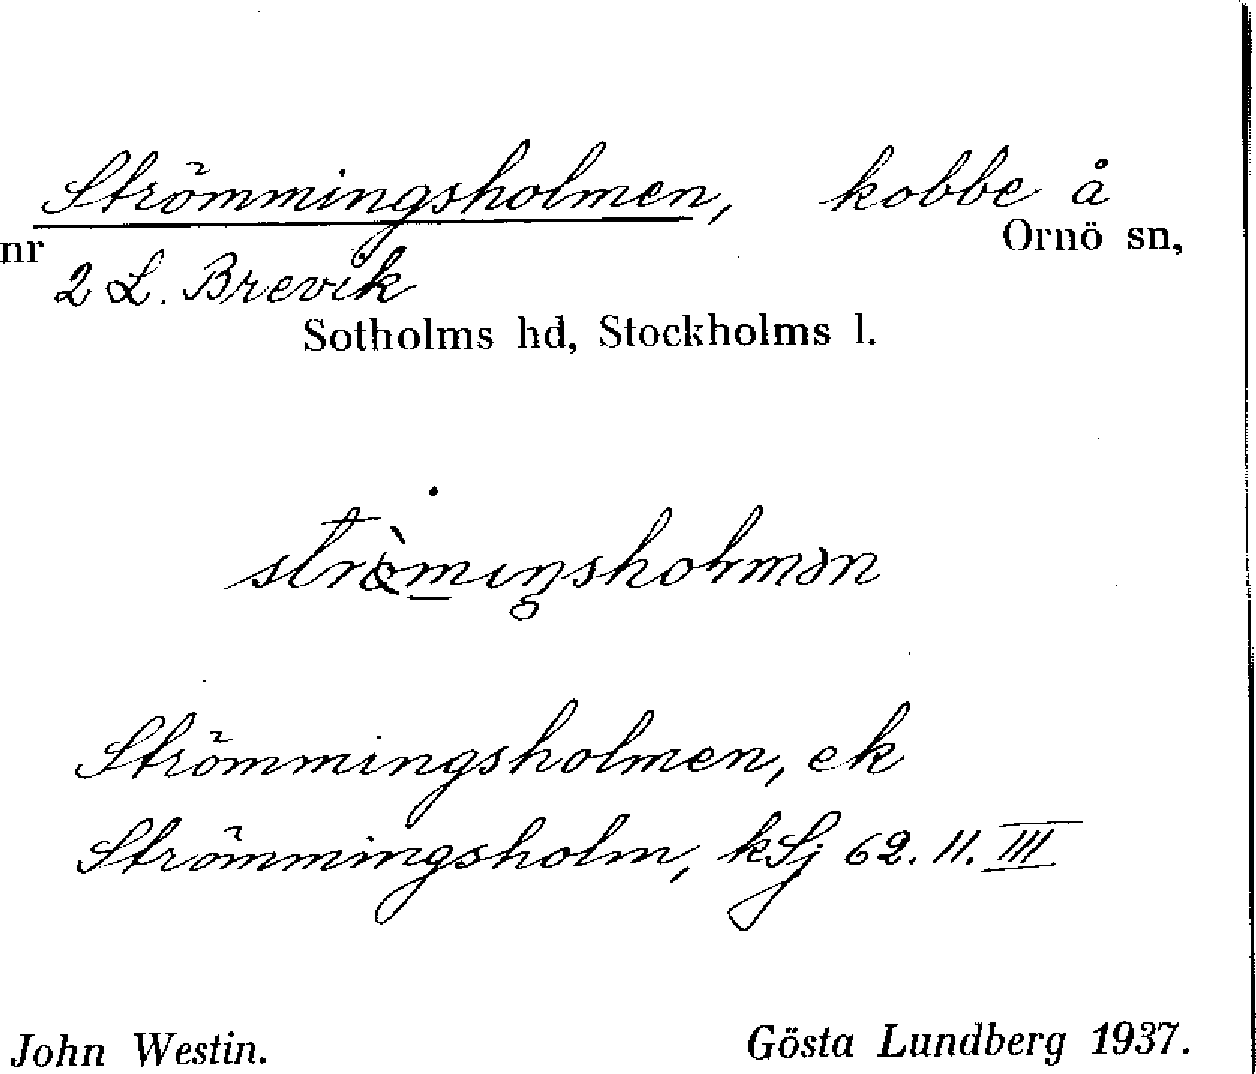 Strömmingsholmen, kobbe å
nr Ornö sn,
2 L. Brevik
Sotholms hd, Stockholms l.
Strömmingsholmen, ek
Strömmingsholm, kSj 62. 11. III
John Westin. Gösta Lundberg 1937.